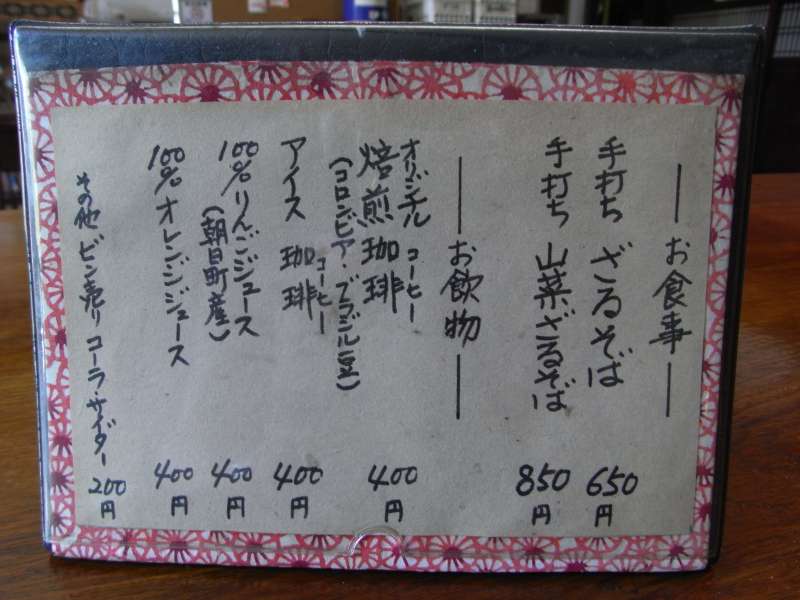 お食事
手打ち ざるそば 650円
手打ち 山菜ざるそば 850円
お飲物
オリジナル コーヒー
焙煎珈琲 400円
(コロンビア・ブラジル豆)
アイス 珈琲 400円
コーヒー
100%りんごジュース 400円
(朝日町産)
100%オレンジジュース 400円
その他 ビン売り コーラ・サイダー 200円